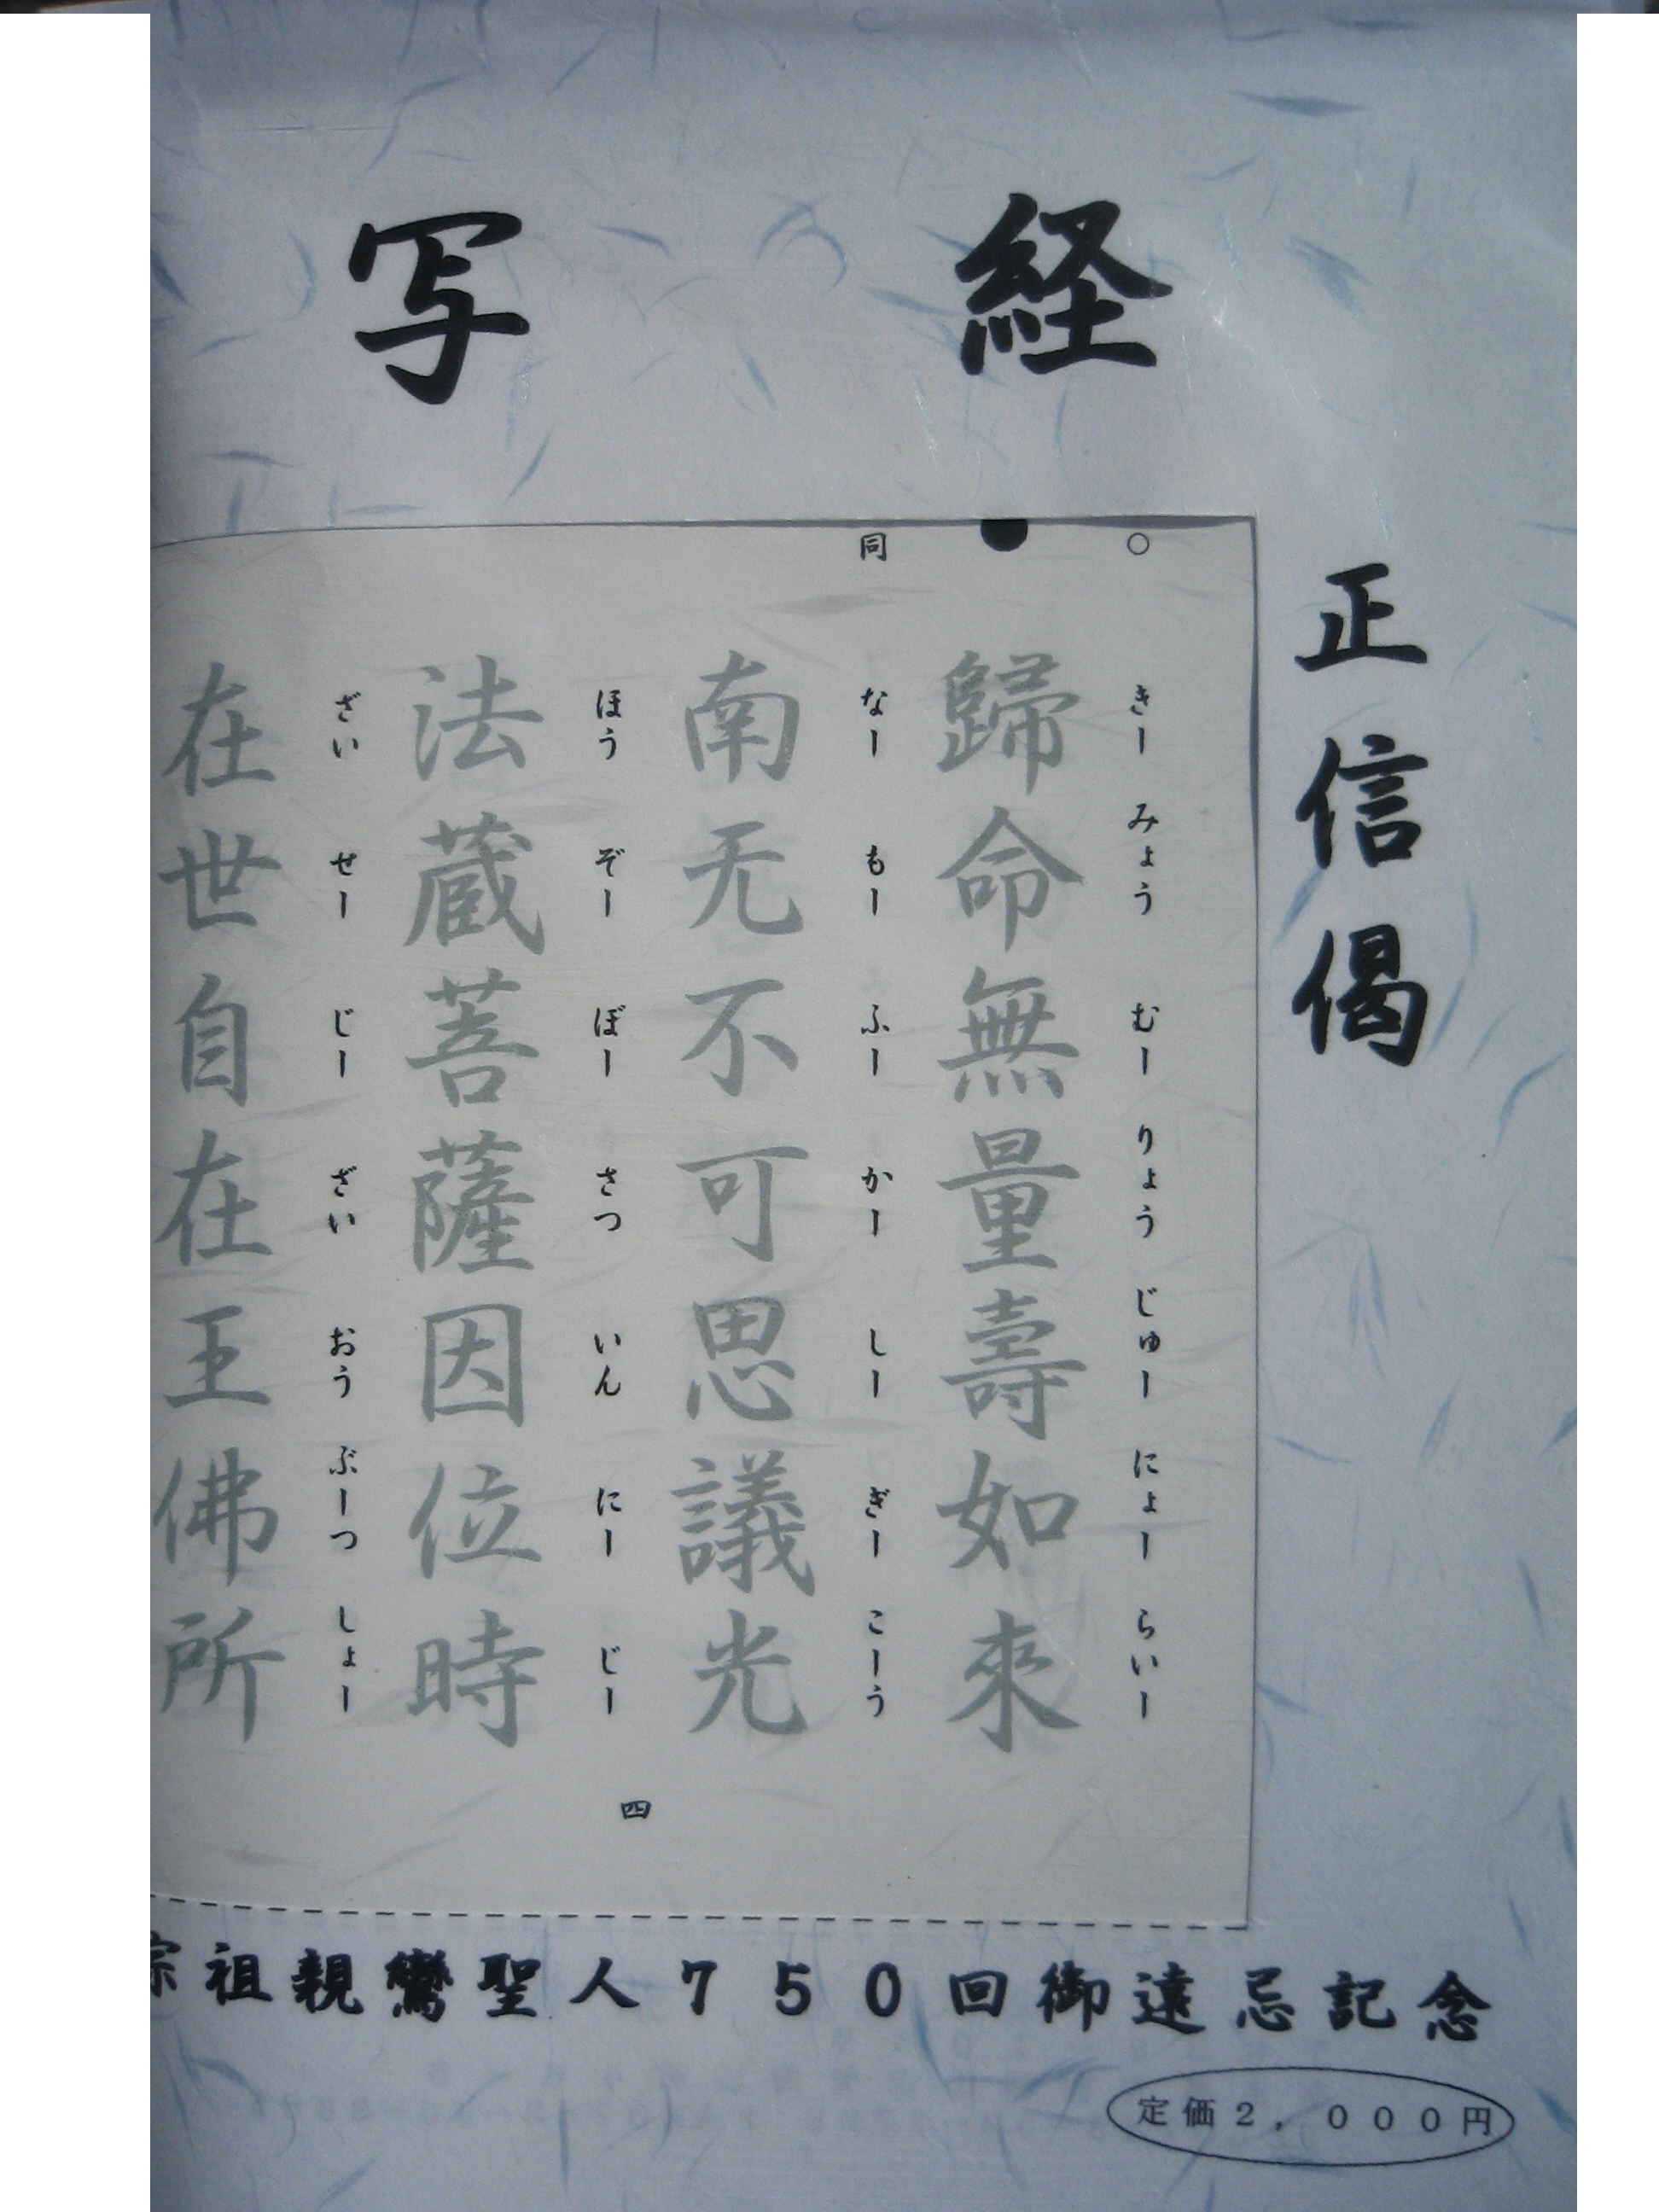 写経
正信偈
○
きーみょうむーりょうじゅーにょーらいー
歸命無量壽如來
同
なーもーふーかーしーぎーこーう
南无不可思議光
ほうぞーぼーさついんにーじー
法蔵菩薩因位時
ざいせーじーざいおうぶーつしょー
在世自在王佛所
四
宗祖親鸞聖人750回御遠忌記念
定価2,000円